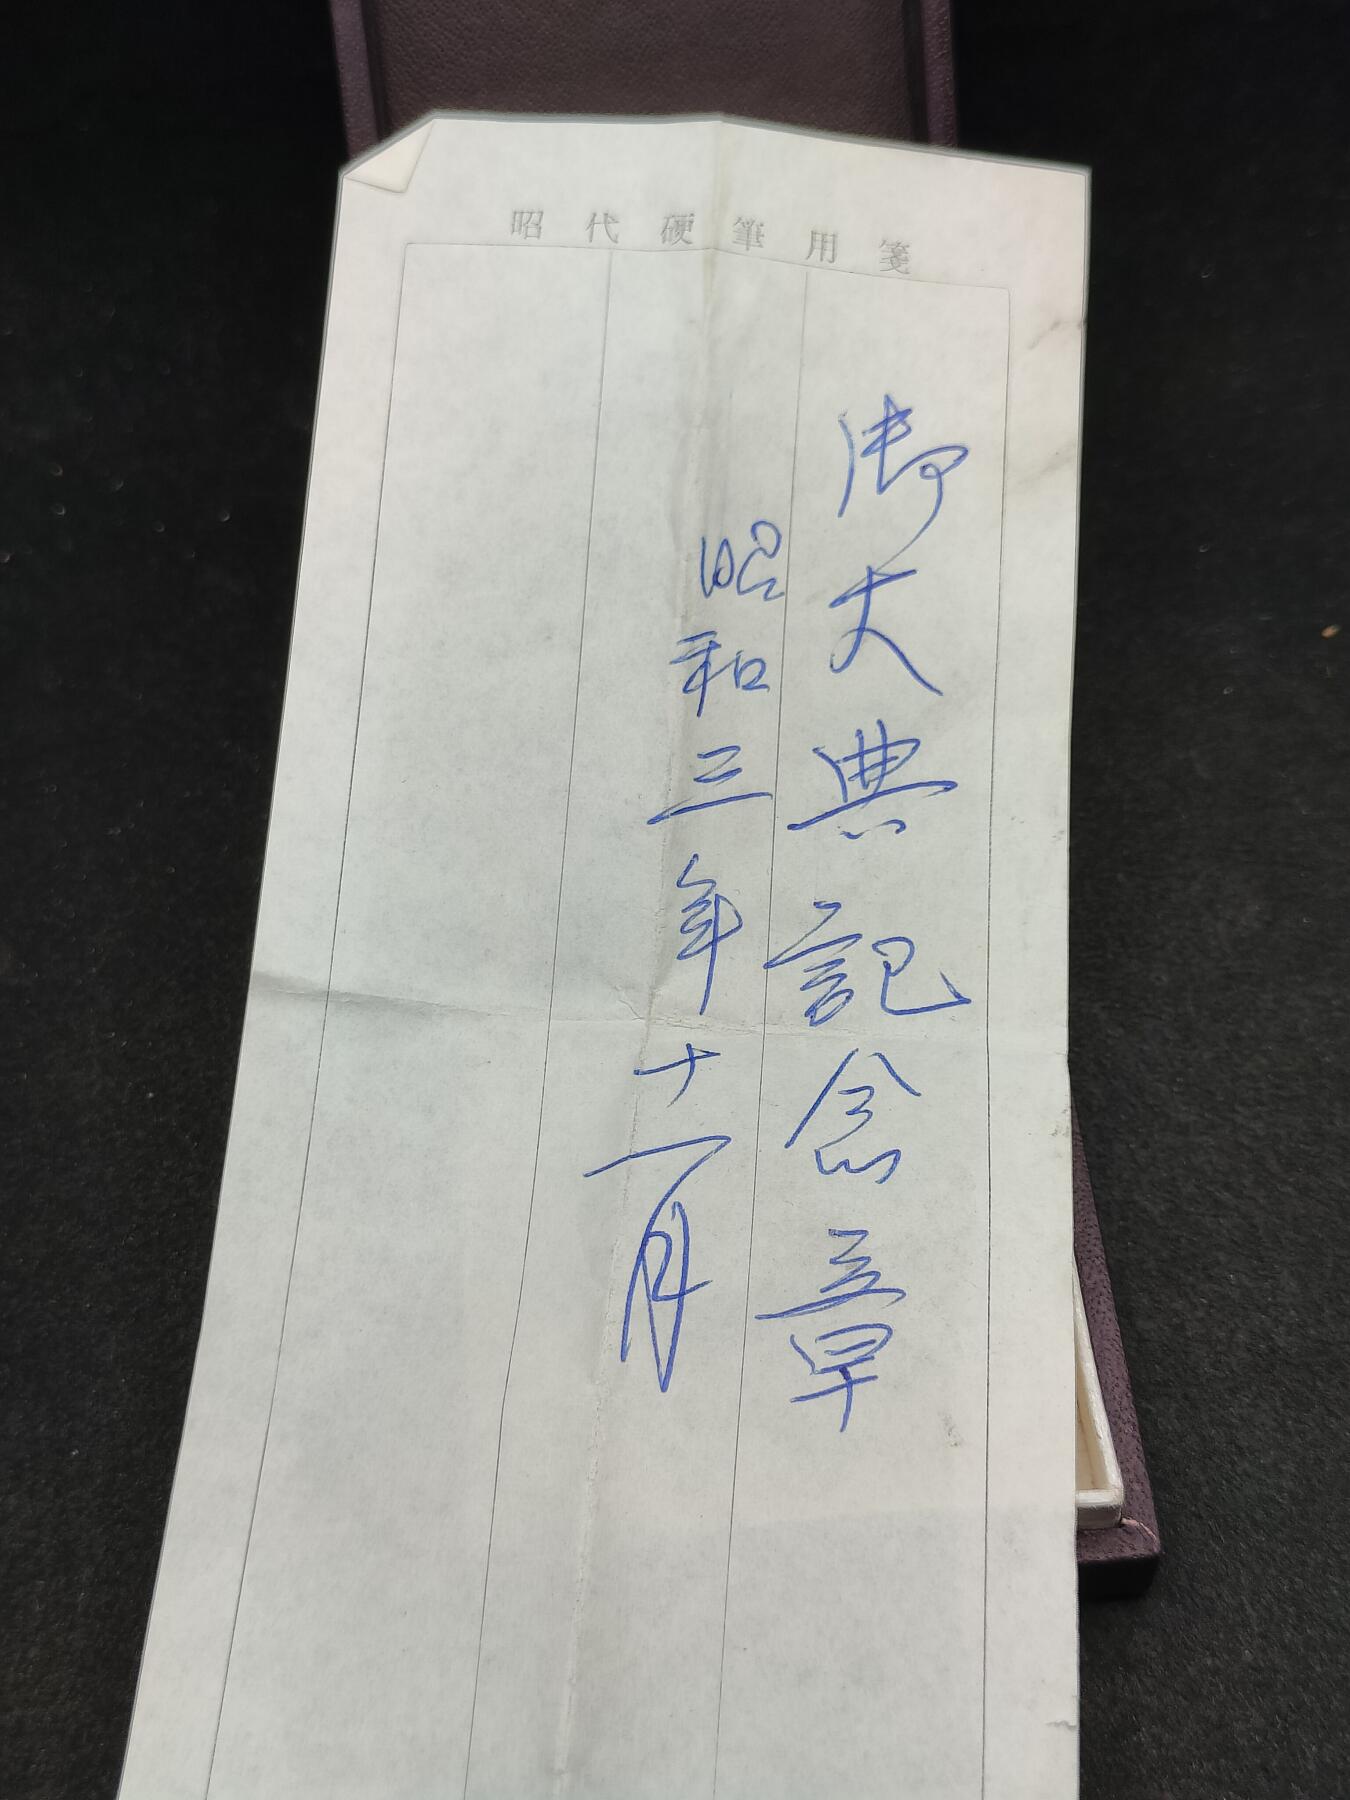 昭代硬筆用箋
御大典記念章
昭和三年十一月